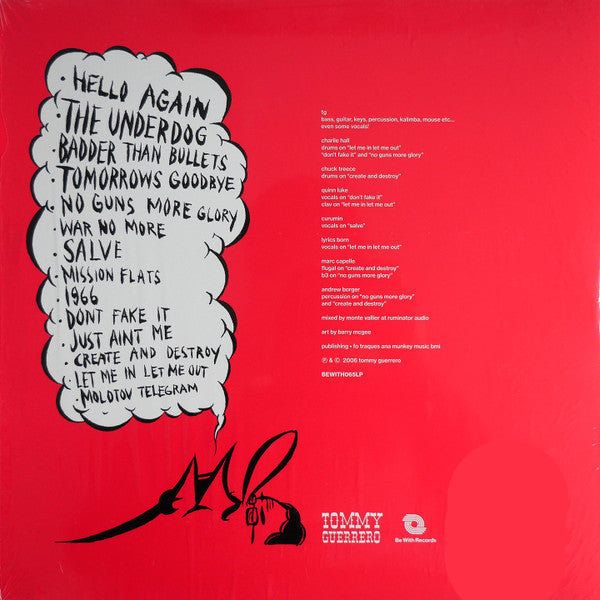 · HELLO AGAIN
· THE UNDERDOG
· BADDER THAN BULLETS
· TOMORROWS GOODBYE
· NO GUNS MORE GLORY
· WAR NO MORE
· SALVE
· MISSION FLATS
· 1966
· DONT FAKE IT
· JUST AINT ME
· CREATE AND DESTROY
· LET ME IN LET ME OUT
· MOLOTOV TELEGRAM
tg
bass, guitar, keys, percussion, kalimba, mouse etc...
even some vocals!
charlie hall
drums on "let me in let me out"
"don't fake it" and "no guns more glory"
chuck treece
drums on "create and destroy"
quinn luke
vocals on "don't fake it"
clav on "let me in let me out"
curumin
vocals on "salve"
lyrics born
vocals on "let me in let me out"
marc capelle
flugal on "create and destroy"
b3 on "no guns more glory"
andrew borger
percussion on "no guns more glory"
and "create and destroy"
mixed by monte vallier at ruminator audio
art by barry mcgee
publishing • fo traques ana munkey music bmi
℗ & © 2006 tommy guerrero
BEWITH065LP
TOMMY
GUERRERO
Be With Records